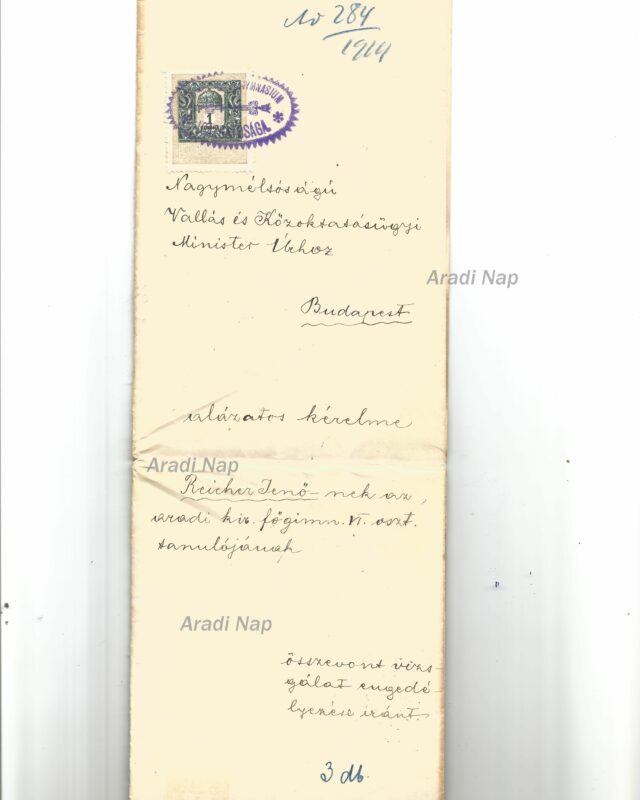 No 284
1914
GYMNASIUM
1
Nagyméltóságú
Vallás és Közoktatásügyi
Minister Úrhoz
Aradi Nap
Budapest
alázatos kérelme
Aradi Nap
Reicher Jenő-nek az
aradi kir. főgimn. VI. oszt.
tanulójának
Aradi Nap
összevont vizs-
gálat engedé-
lyezése iránt
3 db.